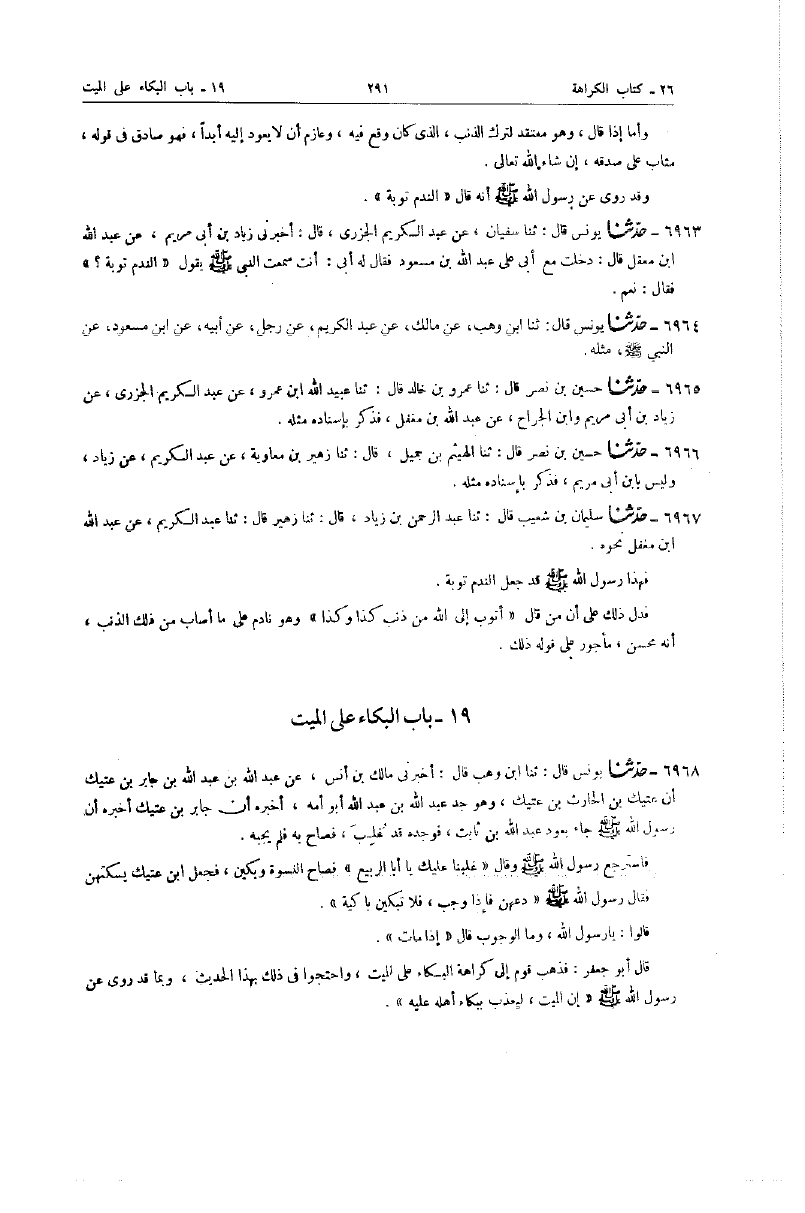 ٢٦ ـ كتاب الكراهة ٢٩١ ١٩ ـ باب البكاء على الميت
وأما إذا قال ، وهو معتقد لترك الذنب ، الذى كان وقع فيه ، وعازم أن لا يعود إليه أبداً ، فهو صادق فى قوله ،
مثاب على صدقه ، إن شاء الله تعالى .
وقد روى عن رسول الله ﷺ أنه قال « الندم توبة » .
٦٩٦٣ ـ حدّثنا يونس قال : ثنا سفيان ، عن عبد الكريم الجزرى ، قال : أخبرنى زياد بن أبى مريم ، عن عبد الله
ابن معقل قال : دخلت مع أبى على عبد الله بن مسعود فقال له أبى : أنت سمعت النبى ﷺ يقول « الندم توبة ؟ »
فقال : نعم .
٦٩٦٤ ـ حدّثنا يونس قال: ثنا ابن وهب، عن مالك، عن عبد الكريم، عن رجل، عن أبيه، عن ابن مسعود، عن
النبي ﷺ، مثله.
٦٩٦٥ ـ حدّثنا حسين بن نصر قال : ثنا عمرو بن خالد قال : ثنا عبيد الله ابن عمرو ، عن عبد الكريم الجزرى ، عن
زياد بن أبى مريم وابن الجراح ، عن عبد الله بن مغفل ، فذكر بإسناده مثله .
٦٩٦٦ ـ حدّثنا حسين بن نصر قال : ثنا الهيثم بن جميل ، قال : ثنا زهير بن معاوية ، عن عبد الكريم ، عن زياد ،
وليس بابن أبى مريم ، فذكر بإسناده مثله .
٦٩٦٧ ـ حدّثنا سليمان بن شعيب قال : ثنا عبد الرحمن بن زياد ، قال : ثنا زهير قال : ثنا عبد الكريم ، عن عبد الله
ابن مغفل نحوه .
فهذا رسول الله ﷺ قد جعل الندم توبة .
فدل ذلك على أن من قال « أتوب إلى الله من ذنب كذا وكذا » وهو نادم على ما أصاب من ذلك الذنب ،
أنه محسن ، مأجور على قوله ذلك .
١٩ ـ باب البكاء على الميت
٦٩٦٨ ـ حدّثنا يونس قال : ثنا ابن وهب قال : أخبرنى مالك بن أنس ، عن عبد الله بن عبد الله بن جابر بن عتيك
أن عتيك بن الحارث بن عتيك ، وهو جد عبد الله بن عبد الله أبو أمه ، أخبره أن جابر بن عتيك أخبره أن
رسول الله ﷺ جاء يعود عبد الله بن ثابت ، فوجده قد غُلِبَ ، فصاح به فلم يجبه .
فاسترجع رسول الله ﷺ وقال « غلبنا عليك يا أبا الربيع » فصاح النسوة وبكين ، فجعل ابن عتيك يسكتهن
فقال رسول الله ﷺ « دعهن فإذا وجب ، فلا تبكين باكية » .
قالوا : يا رسول الله ، وما الوجوب قال « إذا مات » .
قال أبو جعفر : فذهب قوم إلى كراهة البكاء على الميت ، واحتجوا فى ذلك بهذا الحديث ، وبما قد روى عن
رسول الله ﷺ « إن الميت ، ليعذب ببكاء أهله عليه » .